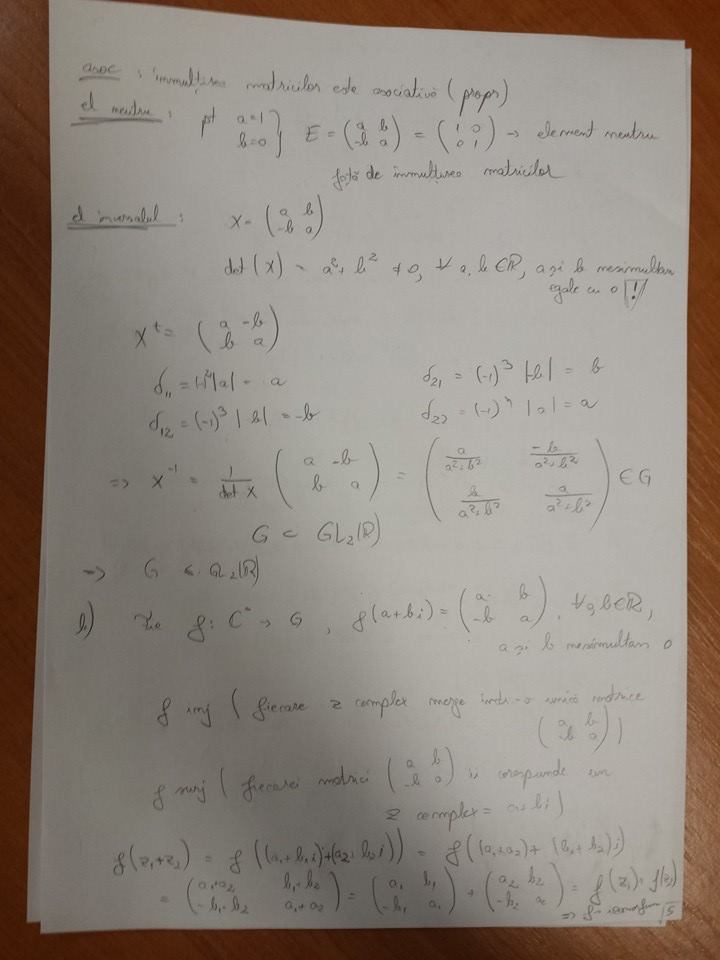 asoc : immulțirea matricilor este asociativă (propr)
el neutru : pt a=1 b=0 } E = (a b / -b a) = (1 0 / 0 1) → element neutru
față de immulțirea matricilor
el inversabil : X = (a b / -b a)
det(X) = a² + b² ≠ 0, ∀ a, b ∈ ℝ, a și b nesimultan
egale cu 0 !
X^t = (a -b / b a)
δ₁₁ = (-1)² |a| = a δ₂₁ = (-1)³ |-b| = b
δ₁₂ = (-1)³ |b| = -b δ₂₂ = (-1)⁴ |a| = a
=> X⁻¹ = 1/det X (a -b / b a) = (a/(a²+b²) -b/(a²+b²) / b/(a²+b²) a/(a²+b²)) ∈ G
G ⊂ GL₂(ℝ)
=> G ≤ GL₂(ℝ)
b) Fie f: C* → G , f(a+bi) = (a b / -b a), ∀ a, b ∈ ℝ,
a și b nesimultan 0
f inj ( fiecare z complex merge într-o unică matrice
(a b / -b a) )
f surj ( fiecărei matrici (a b / -b a) îi corespunde un
z complex = a+bi )
f(z₁+z₂) = f((a₁+b₁i)+(a₂+b₂i)) = f((a₁+a₂)+(b₁+b₂)i)
= (a₁+a₂ b₁+b₂ / -b₁-b₂ a₁+a₂) = (a₁ b₁ / -b₁ a₁) + (a₂ b₂ / -b₂ a₂) = f(z₁)+f(z₂)
=> f izomorfism 5